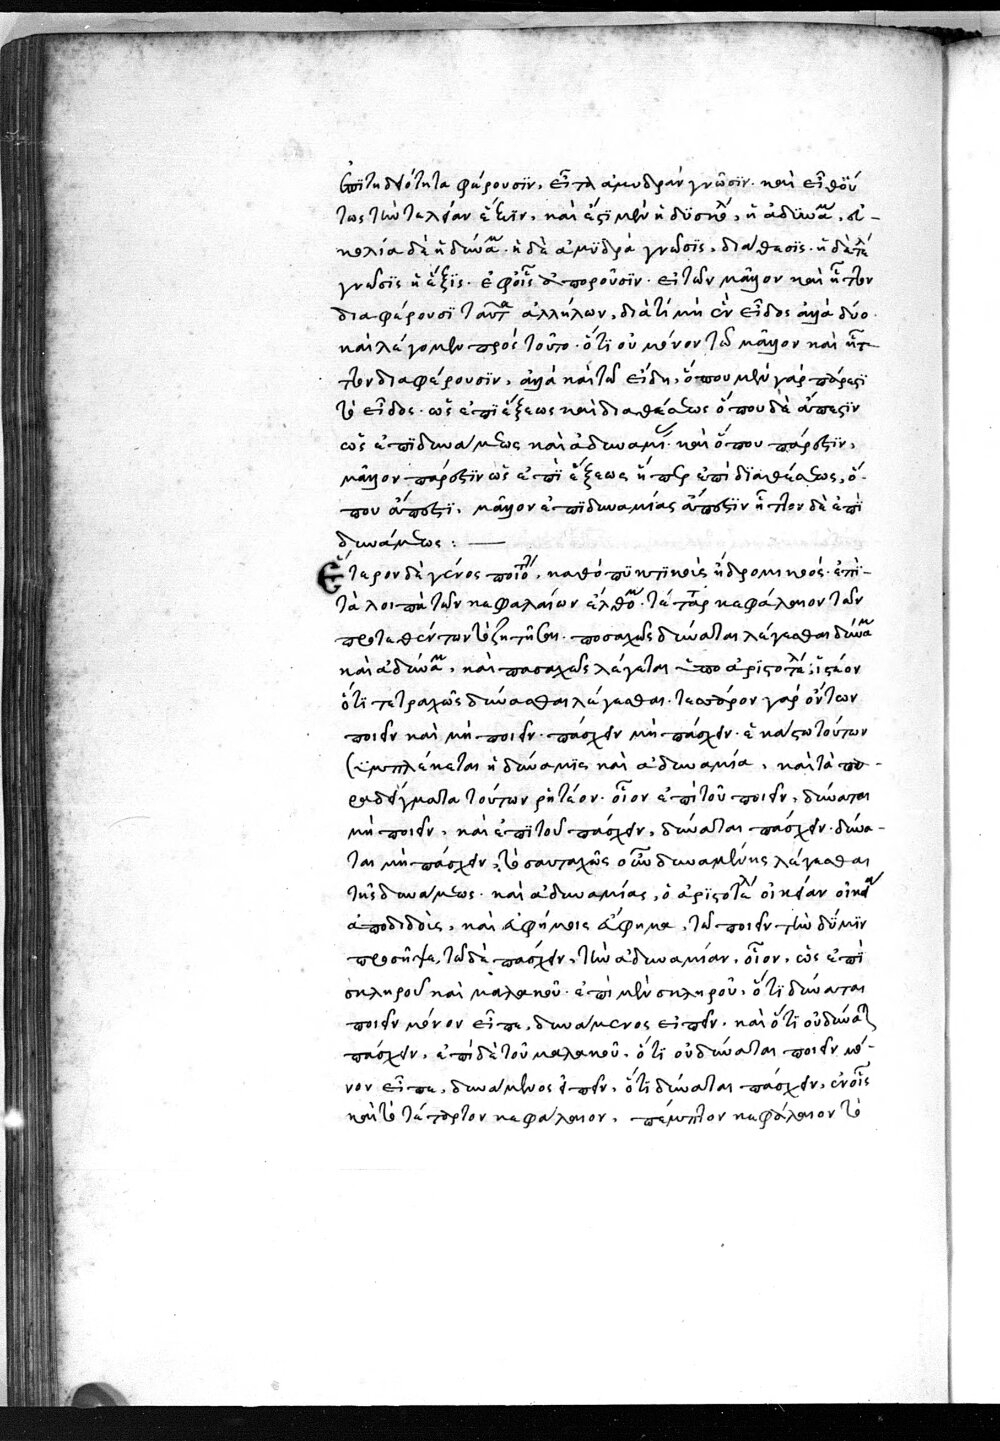 ἐπιτηδειότητα φέρουσιν, εἶτα ἀμυδρὰν γνῶσιν· καὶ εἶθ' οὕ
τως τὴν τελείαν ἕξιν, καὶ ἔστι μὲν ἡ ἀδυναμία,
δὲ ἡ δύναμις· ἡ δὲ ἀμυδρὰ γνῶσις, διάθεσις· ἡ δὲ τελεία
γνῶσις ἡ ἕξις· ἐφ' οἷς ἀποροῦσιν· εἰ τῶ μᾶλλον καὶ ἧττον
διαφέρουσι ταῦτα ἀλλήλων, διὰ τί μὴ ἓν εἶδος ἀλλὰ δύο·
καὶ λέγομεν πρὸς τοῦτο· ὅτι οὐ μόνον τῶ μᾶλλον καὶ ἧτ-
τον διαφέρουσιν, ἀλλὰ καὶ τῶ εἴδη, ὅπου μὲν γὰρ πάρεστι
τὸ εἶδος· ὡς ἐπὶ ἕξεως καὶ διαθέσεως ὅπου δὲ ἄπεστιν
ὡς ἐπὶ δυνάμεως καὶ ἀδυναμίας· καὶ ὅπου πάρεστιν,
μᾶλλον πάρεστιν ὡς ἐπὶ ἕξεως ἤπερ ἐπὶ διαθέσεως, ὅ-
που ἄπεστι, μᾶλλον ἐπὶ δυναμίας ἄπεστιν ἧττον δὲ ἐπὶ
δυνάμεως : —
Ἕτερον δὲ γένος ποιότητος, καθὸ πυκτικοὺς ἢ δρομικούς· ἐπὶ-
τὰ λοιπὰ τῶν κεφαλαίων ἔλθωμεν· τέταρτον κεφάλαιον τῶν
προτεθέντων τὸ ζητῆσαι· ποσαχῶς δύναται λέγεσθαι δύναμις
καὶ ἀδυναμία, καὶ ποσαχῶς λέγεται ὑπὸ ἀριστοτέλους; ἰστέον
ὅτι τετραχῶς δύνασθαι λέγεσθαι· τεσσάρων γὰρ ὄντων
ποιεῖν καὶ μὴ ποιεῖν· πάσχειν μὴ πάσχειν· ἑκάστω τούτων
συμπλέκεται ἡ δύναμις καὶ ἀδυναμία, καὶ τὰ πα-
ραδείγματα τούτων ῥητέον· οἷον ἐπὶ τοῦ ποιεῖν, δύναται
μὴ ποιεῖν, καὶ ἐπὶ τοῦ πάσχειν, δύναται πάσχειν· δύνα-
ται μὴ πάσχειν, τοσαυταχῶς οὖν δυναμένης λέγεσθαι
τῆς δυνάμεως· καὶ ἀδυναμίας, ὁ ἀριστοτέλης οἰκεῖαν οἰκεία
ἀποδιδοὺς, καὶ, τῶ ποιεῖν τὴν δύναμιν
προσῆψε, τῶ δὲ πάσχειν, τὴν ἀδυναμίαν, οἷον, ὡς ἐπὶ
σκληροῦ καὶ μαλακοῦ· ἐπὶ μὲν σκληροῦ, ὅτι δύναται
ποιεῖν μόνον εἶπε, δυνάμενος εἰπεῖν, καὶ ὅτι οὐ δύναται
πάσχειν, ἐπὶ δὲ τοῦ μαλακοῦ, ὅτι οὐ δύναται ποιεῖν μό-
νον εἶπε, δυνάμενος εἰπεῖν, ὅτι δύναται πάσχειν, ἐν οἷς
καὶ τὸ τέταρτον κεφάλαιον, πέμπτον κεφάλαιον τὸ